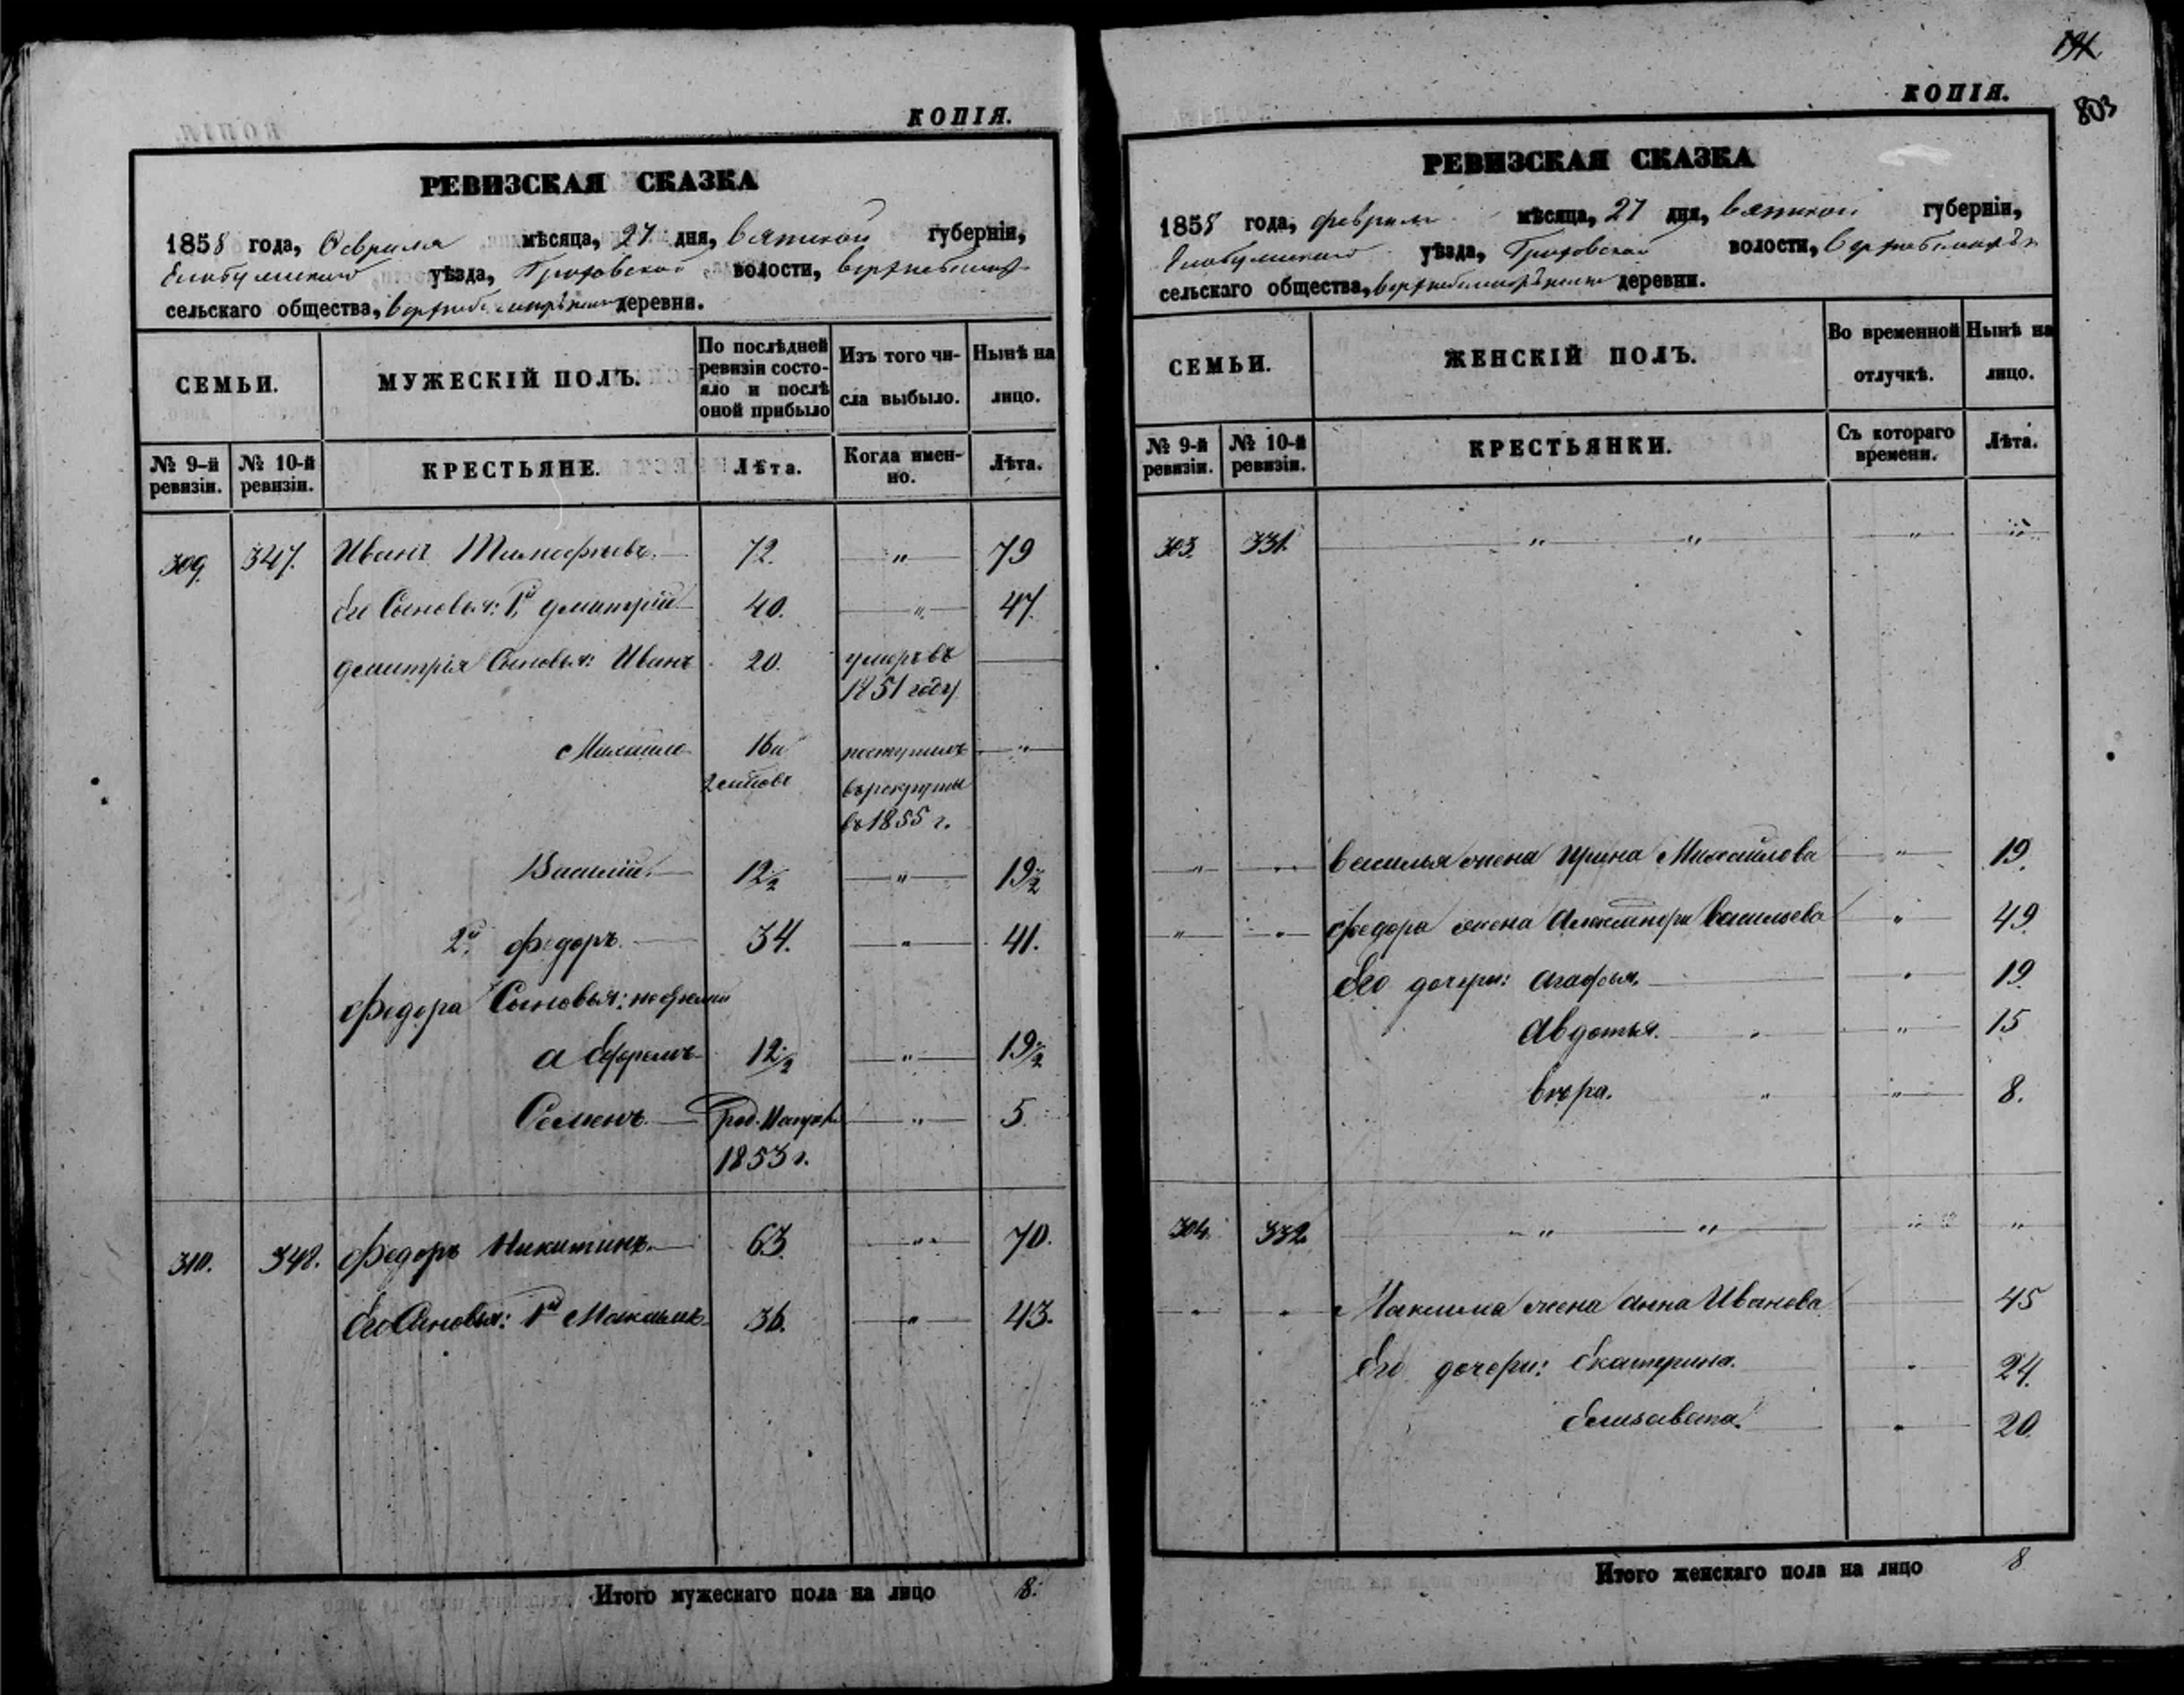 КОПІЯ.
РЕВИЗСКАЯ СКАЗКА
1858 года, Февраля мѣсяца, 27 дня, Вятской губерніи,
Елабужскаго уѣзда, волости,
сельскаго общества, деревни.
СЕМЬИ.
МУЖЕСКІЙ ПОЛЪ.
По послѣдней ревизіи состояло и послѣ оной прибыло
Изъ того числа выбыло.
Нынѣ на лицо.
№ 9-й ревизіи.
№ 10-й ревизіи.
КРЕСТЬЯНЕ.
Лѣта.
Когда именно.
Лѣта.
309. 347. Иванъ Тимофѣевъ. 72. „ 79
Его Сыновья: 1й Дмитрій 40. „ 47.
Дмитрія Сыновья: Иванъ 20. умеръ въ
1851 году
Михайло 16 и поступилъ „
въ рекруты
въ 1855 г.
Василій. 12½ „ 19½
2й Федоръ. 34. „ 41.
Федора Сыновья:
а Ефремъ 12½ „ 19½
Семенъ. род. „ 5.
1853 г.
310. 348. Федоръ Никитинъ. 63. „ 70.
Его Сыновья: 1й Максимъ 36. „ 43.
Итого мужескаго пола на лицо 8.
194
КОПІЯ.
803
РЕВИЗСКАЯ СКАЗКА
1858 года, Февраля мѣсяца, 27 дня, Вятской губерніи,
Елабужскаго уѣзда, волости,
сельскаго общества, деревни.
СЕМЬИ.
ЖЕНСКІЙ ПОЛЪ.
Во временной отлучкѣ.
Нынѣ на лицо.
№ 9-й ревизіи.
№ 10-й ревизіи.
КРЕСТЬЯНКИ.
Съ котораго времени.
Лѣта.
303. 331. „ „ „ „
„ „ Василья жена Ирина Михайлова „ 19.
„ „ Федора жена Васильева „ 49.
Его дочери: Агафья. „ 19.
Авдотья. „ „ 15
Вѣра. „ „ 8.
304. 332. „ „ „ „
„ „ Максима жена Анна Иванова 45
Его дочери: Екатерина. „ 24.
Елизавета. „ 20.
Итого женскаго пола на лицо 8